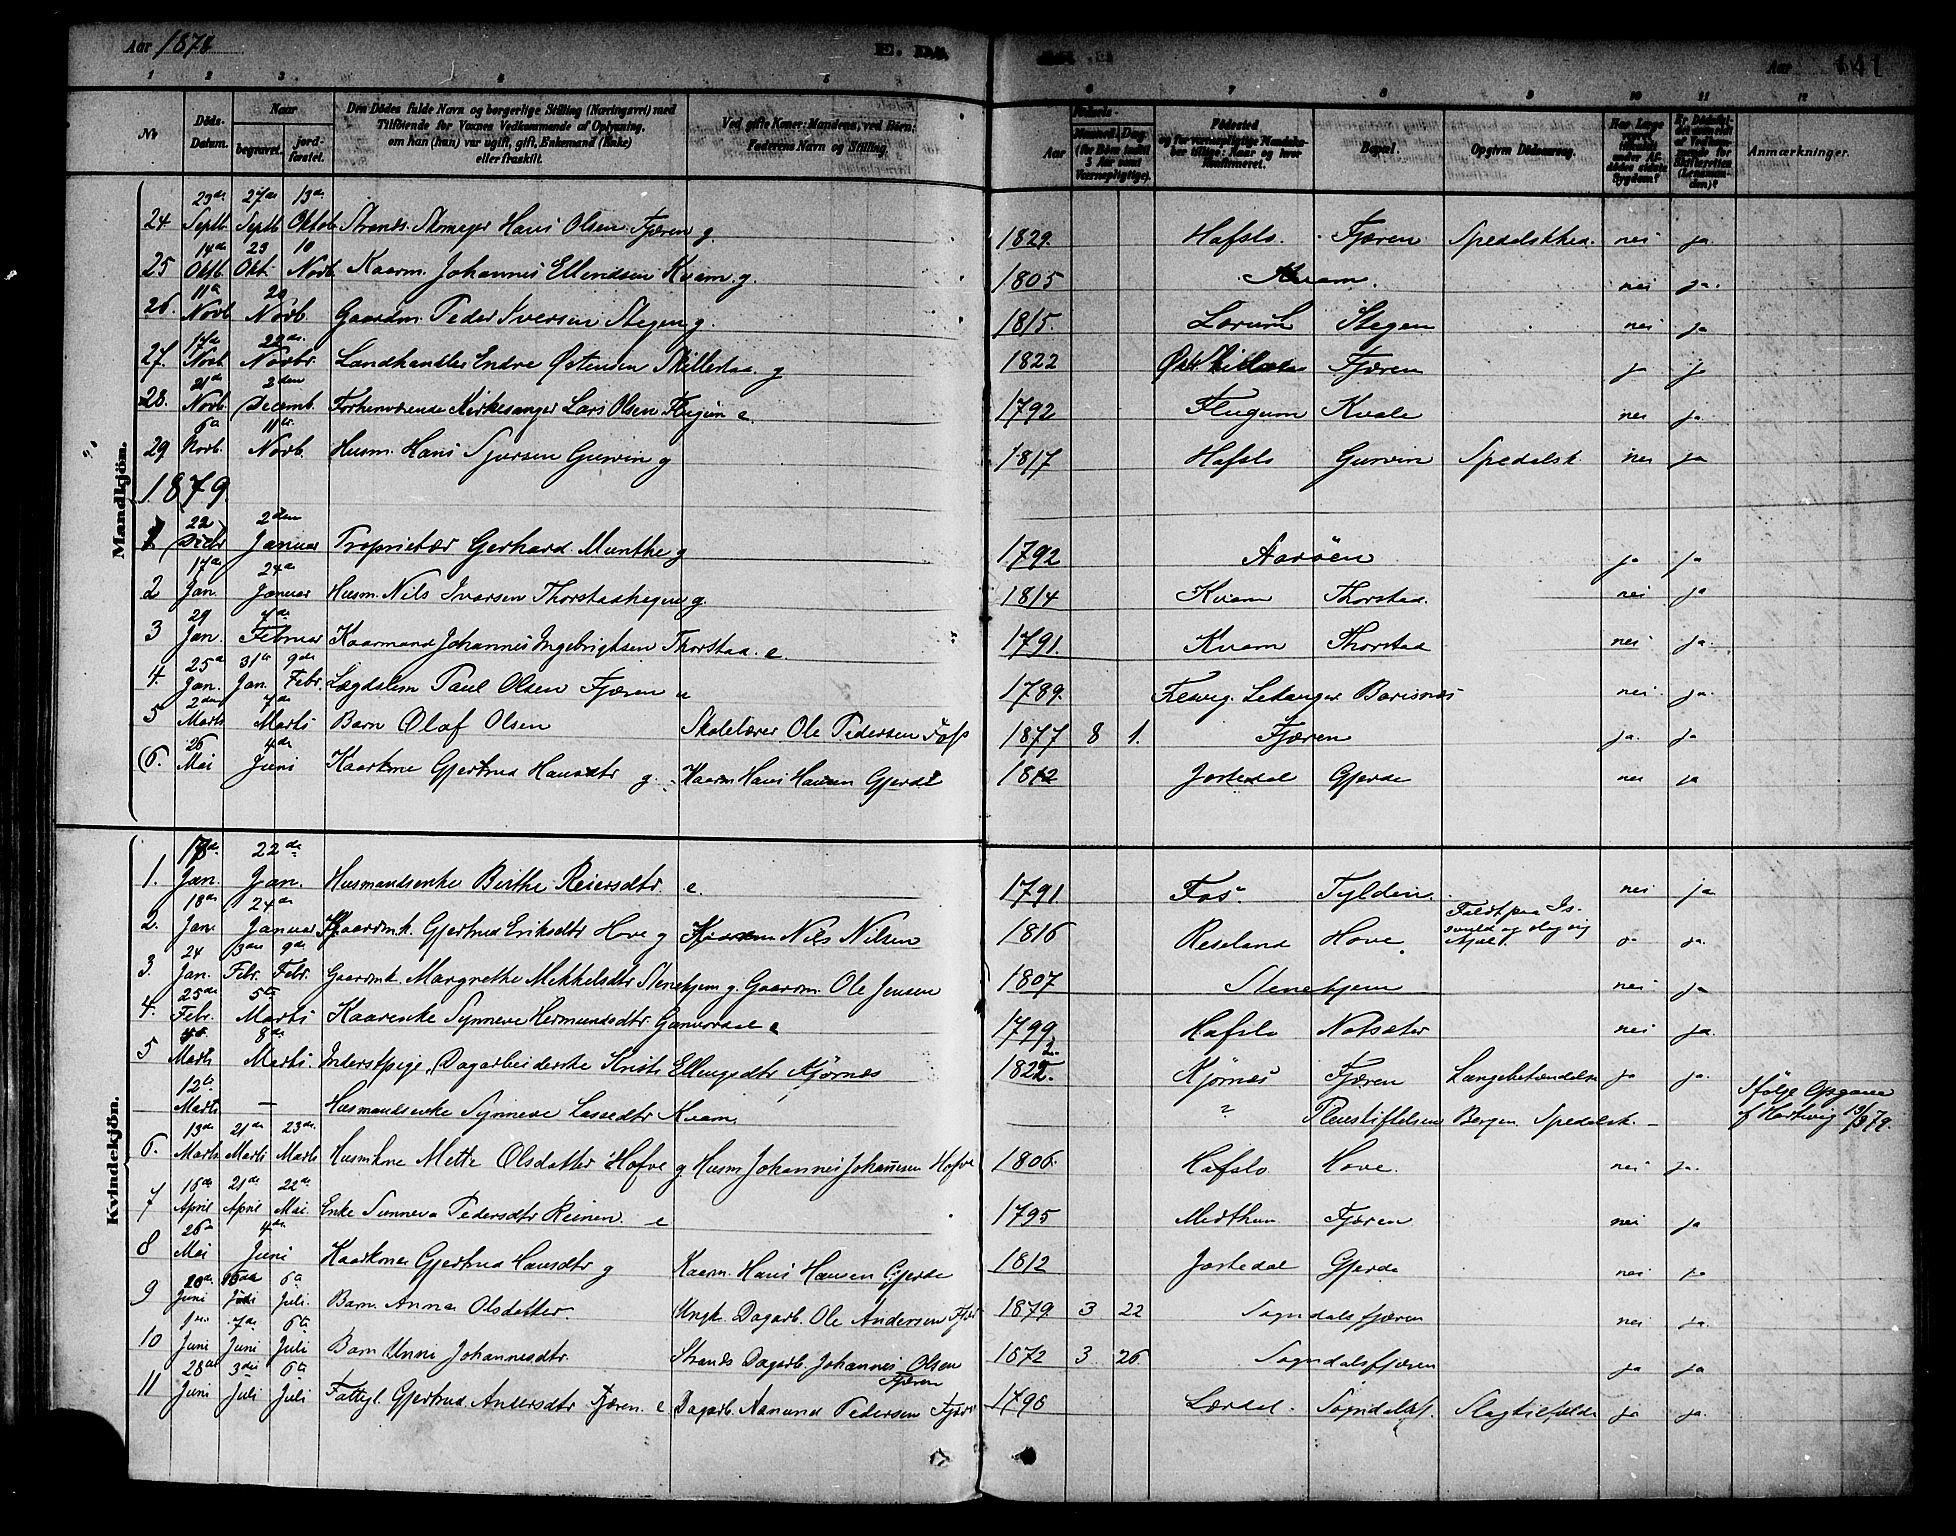 Aar 1878 E. Dø Aar 141
1 2 3 4 5 6 7 8 9 10 11 12
No Døds-Datum. Naar begravet. jordfæstet. Den Dødes fulde Navn og borgerlige Stilling (Næringsvei) med Tilføiende for Voxnes Vedkommende af Oplysning, om han (hun) var ugift, gift, Enkemand (Enke) eller fraskilt. Ved gifte Koner: Mandens, ved Børn: Faderens Navn og Stilling. Aar Maaned. Dag. (for Børn indtil 5 Aar samt Værnepligtige). Fødested og for værnepligtige Mandskaber tillige: Naar og hvor Konfirmeret. Bopæl. Opgiven Dødsaarsag. Anmærkninger.
Mandkjön.
24. 23de Septb. 27de Septb. 13de Oktob. Strands. Skomager Hans Olsen Fjæren g. 1829. Hafslo. Fjæren Spedalskhed. nei ja
25 14de Oktb. 23 Okt. 10 Novb. Kaarm. Johannes Ellendsen Kvam g. 1805 Kvam. nei ja.
26. 11te Novb. 20 Novb. Gaardm. Peder Iversen Stegen g. 1815. Stegen nei ja
27. 17de Novb. 22de Novbr. Landhandler Endre Østensen Skillestaa. g 1822 Fjæren j j
28. 21de Novb. 2den Decemb. Forhenværende Kirkesanger Lars Olsen Flugum e. 1792 Flugum Kvale nei ja
29 6te Novb. 11te Novb. Husm. Hans Sjursen Gurvin g 1817 Hafslo Gurvin Spedalsk nei ja
1879.
1 22 Decbr 2den Januar Proprietær Gerhard Munthe g 1792 Aarøen ja ja
2 17de Jan. 24de Januar Husm. Nils Ivarsen Thorstadhagen g. 1814 Kvam Thorstad. nei ja
3 29 Jan. 7de Februar Kaarmand Johannes Ingebrigtsen Thorstad. e. 1791. Kvam Thorstad nei ja.
4. 25de Jan. 31te Jan. 9de Febr. Lægdslem Paul Olsen Fjæren e 1789. Leikanger nei. ja.
5 2den Marts 7de Marts Barn Olaf Olsen Skolelærer Ole Pedersen Fos 1877 8 1. Fjæren ja. ja
6. 26 Mai 4de Juni Kaarkone Gjertrud Hansdtr g. Kaarm Hans Hansen Gjerde 1812 Jostedal Gjerde nei ja
Kvindekjön.
1. 17de Jan. 22de Jan. Husmandsenke Birthe Reiersdtr. e. 1791 Fos Tylden. nei ja
2. 18de Jan. 24de Januar Kaardmk. Gjertrud Eriksdtr Hove g Kaarm Nils Nilsen 1816 Reseland Hove. Faldt paa Issvuld og slog sig ihjel. ja ja.
3. 24 Jan. 3die Febr. 9de Febr. Gaardmk. Margrethe Mikkelsdtr Stenehjem g. Gaardm. Ole Jensen 1807 Stenehjem nei ja
4. 25de Febr. 5te Marts Kaarenke Synneve Hermundsdtr e 1799 Hafslo Notsæter nei ja.
5 Marts 8de Marts. Inderstpige, Dagarbeiderske Kristi Ellingsdtr Kjørnes 1822. Kjørnes Fjæren Lungebetændelse ja ja.
12te Marts — Husmandsenke Synneve Lassedtr Kvam. " Pleiestiftelsen Bergen Spedalsk. – Ifølge Opgave af Hartvig 19/3 79.
6. 13de Marts 21de Marts 23de Marts Husmkone Mette Olsdatter Hofve g Husm Johannes Johannesen Hofve 1806. Hafslo Hove. nei ja.
7 16de April 21de April 22de Mai Enke Sunneva Pedersdtr Reinen e 1795 Midthun Fjæren nei ja
8 26de Mai 4de Juni Kaarkone Gjertrud Hansdtr g Kaarm. Hans Hansen Gjerde 1812 Jostedal Gjerde nei ja
9 20de Juni Juli 6te Juli. Barn Anna Olsdatter. Ungk. Dagarb. Ole Andersen Fjær 1879. 3 22 Sogndalsfjæren nei ja.
10 1ste Juni 7de Juni 6te Juli Barn Unni Johannesdtr. Strands Dagarb. Johannes Olsen Fjæren 1872 3 26 Sogndalsfjæren ja ja
11 28de Juni 3die Juli 6te Juli Fattigl. Gjertrud Andersdtr Fjæren. e Dagarb. Aanund Pedersen Fjære 1796 Lærdal. Sogndalsf. Slagtilfælde ja ja.